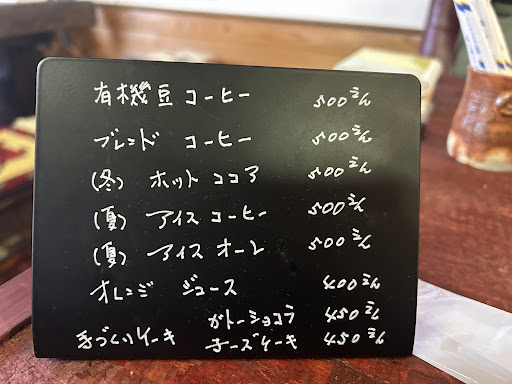 有機豆コーヒー 500えん
ブレンド コーヒー 500えん
(冬) ホット ココア 500えん
(夏) アイス コーヒー 500えん
(夏) アイス オーレ 500えん
オレンジ ジュース 400えん
ガトーショコラ 450えん
手づくりケーキ チーズケーキ 450えん